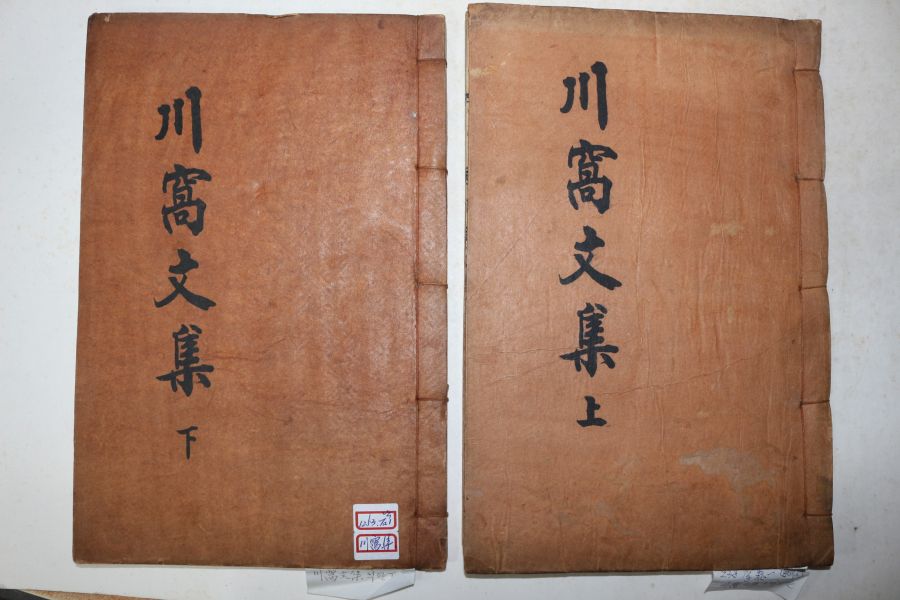 川窩文集
上
川窩文集
下
川窩集
川窩文集